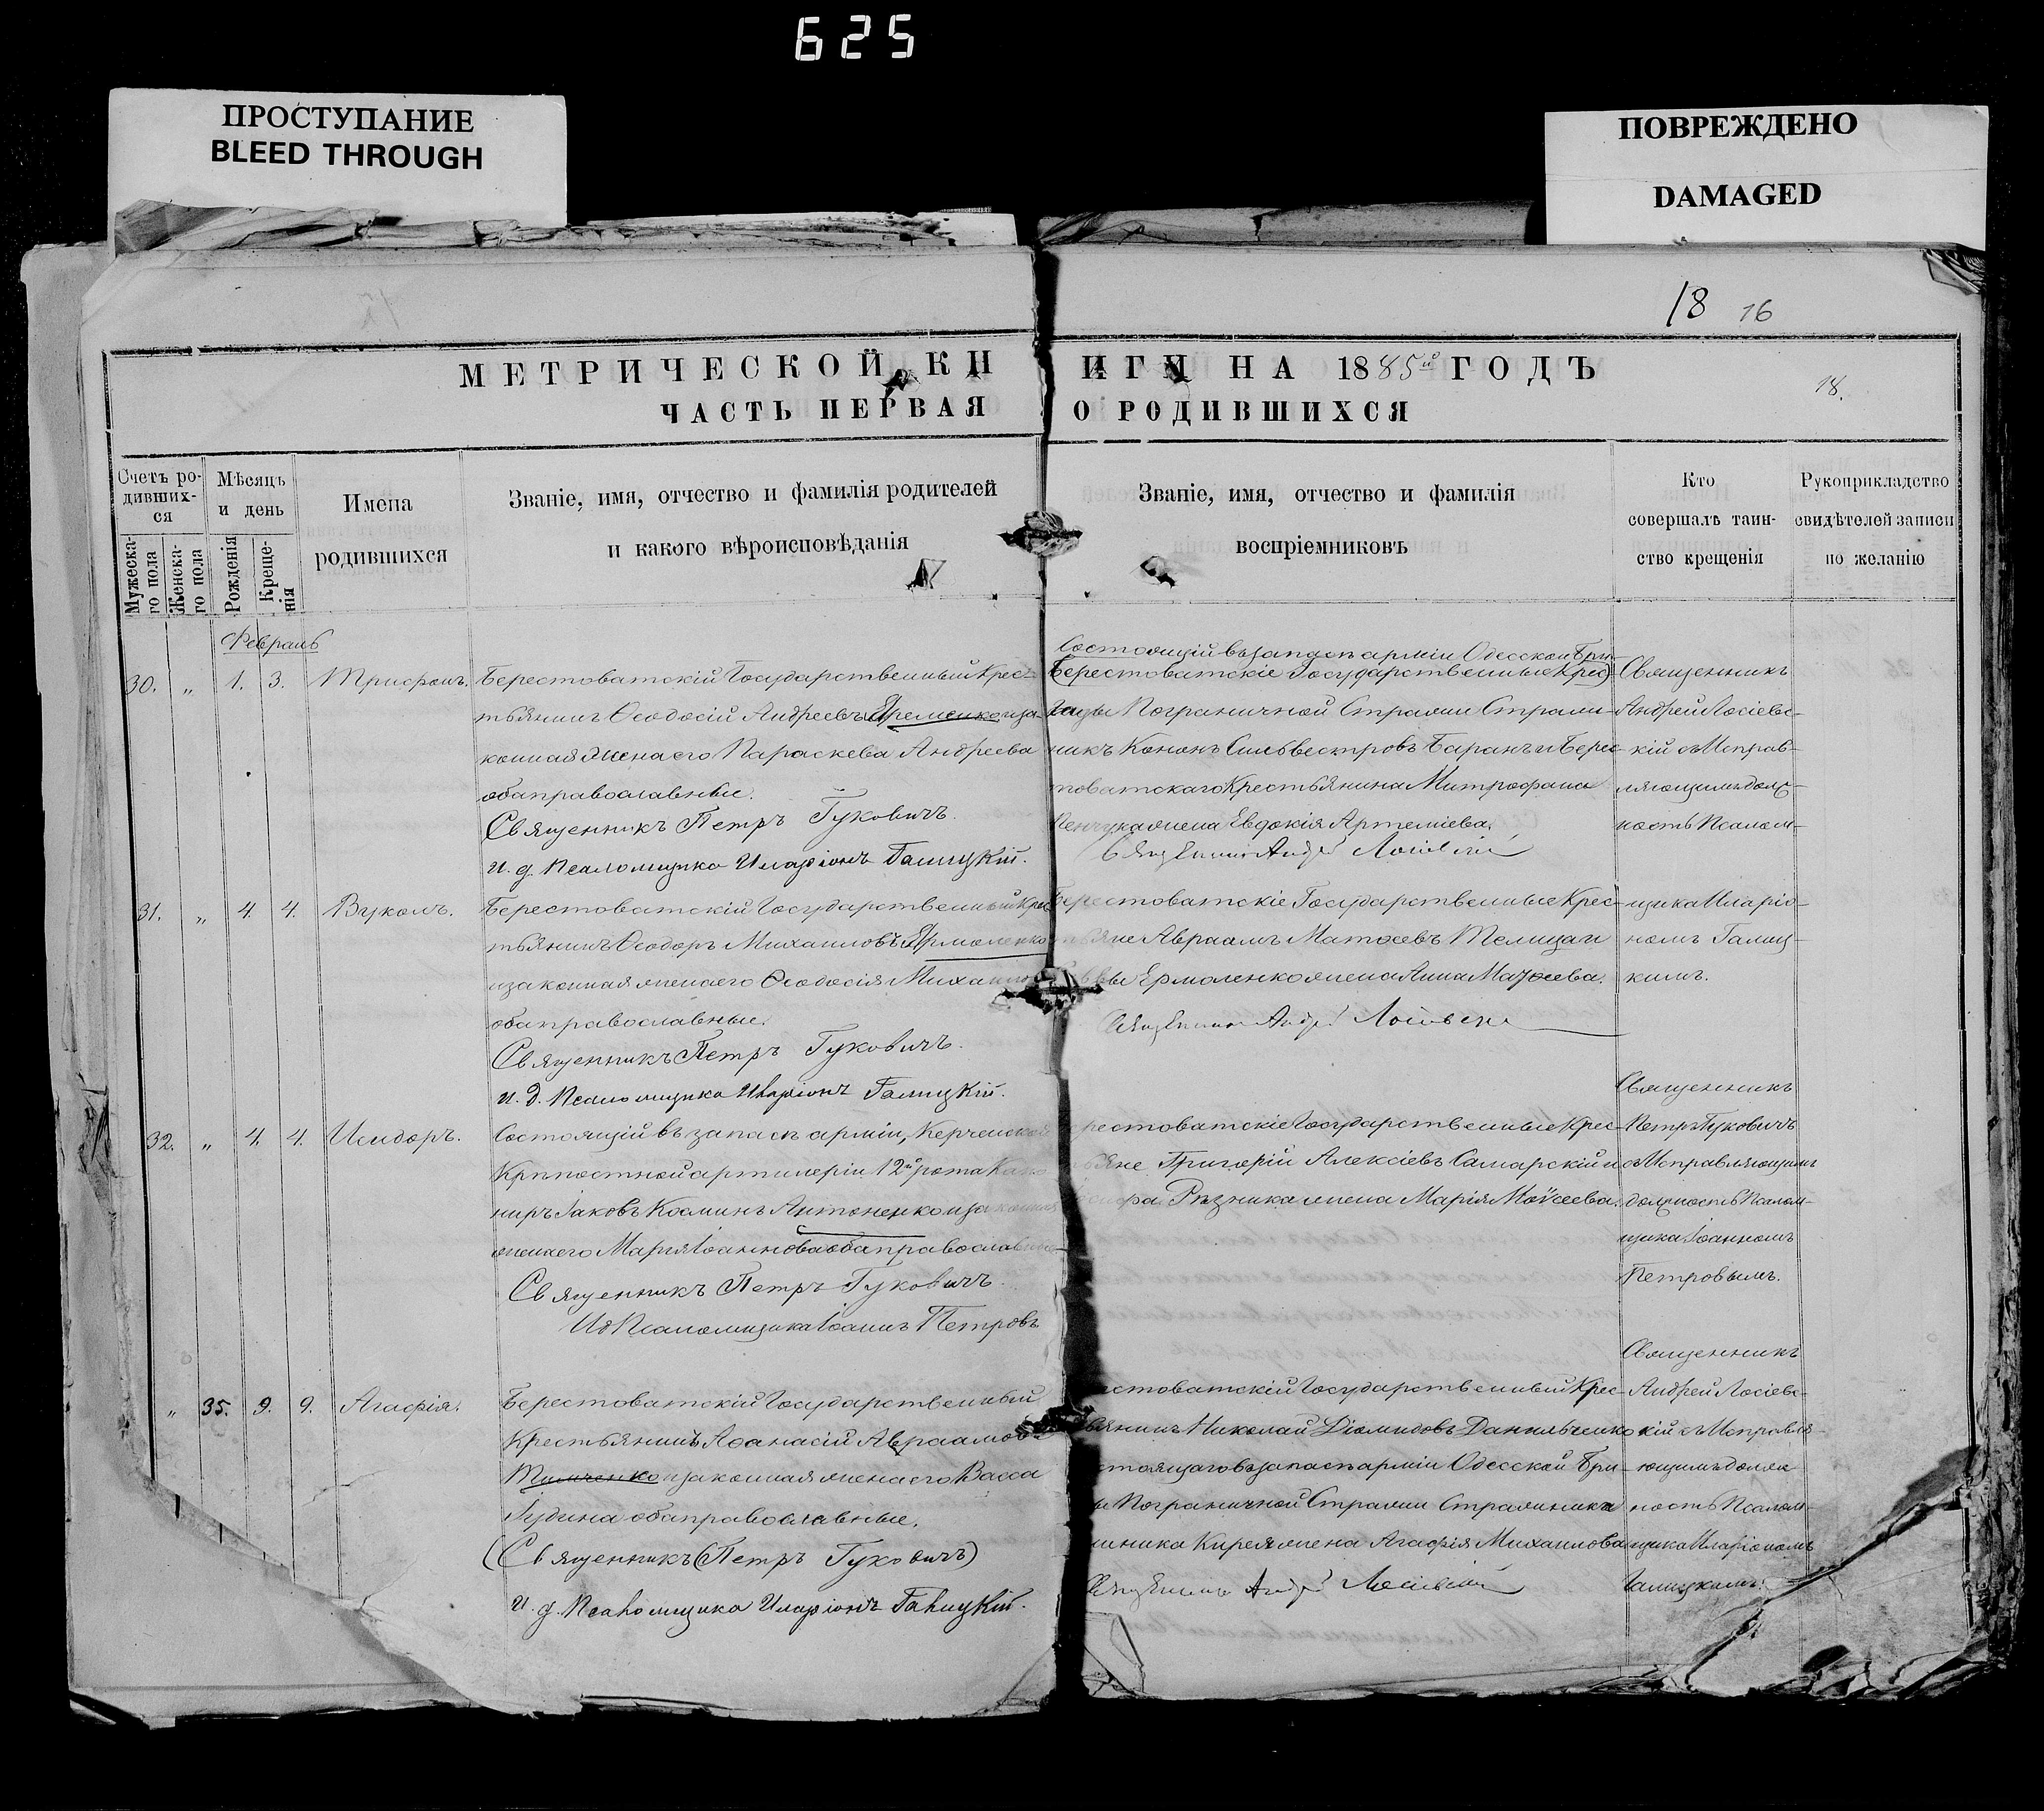 625
ПРОСТУПАНИЕ
BLEED THROUGH
ПОВРЕЖДЕНО
DAMAGED
18 16
МЕТРИЧЕСКОЙ КНИГИ НА 1885й ГОДЪ
18.
ЧАСТЬ ПЕРВАЯ О РОДИВШИХСЯ
Счетъ ро-
дивших-
ся
Мужеска-
го пола
Женска-
го пола
Мѣсяцъ
и день
Рожденія
Креще-
нія
Имена
родившихся
Званіе, имя, отчество и фамилія родителей
и какого вѣроисповѣданія
Званіе, имя, отчество и фамилія
воспріемниковъ
Кто
совершалъ таин-
ство крещенія
Рукоприкладство
свидѣтелей записи
по желанію
Февраль
30. „ 1. 3. Трифонъ.
Берестоватскій Государственный Крес-
тьянинъ Ѳеодосій Андреевъ Яременко и за-
конная жена его Параскева Андреева
оба православные.
Священникъ Петръ Гуковичъ.
и. д. Псаломщика Иларіонъ Галицкій.
Состоящій въ запасѣ арміи Одесской Бри-
(Берестоватскіе Государственные Крес)
гады Пограничной Стражи Страж-
никъ Кононъ Сильвестровъ Баранъ и Берес
товатскаго Крестьянина Митрофана
жена Евдокія Артеміева.
Священникъ Андрей Лосіевскій
Священникъ
Андрей Лосіевс-
кій съ Исправ-
ляющимъ долж-
ность Псалом-
31. „ 4. 4. Вуколъ.
Берестоватскій Государственный Крес
тьянинъ Ѳеодоръ Михаиловъ Ярмоленко
и законная жена его Ѳеодосія
оба православные.
Священникъ Петръ Гуковичъ.
и. д. Псаломщика Иларіонъ Галицкій.
Берестоватскіе Государственные Крес-
тьяне Авраамъ Матѳеевъ
Ермоленко жена Анна Матѳеева.
Священникъ Андрей Лосіевскій
щика Иларіо-
номъ Галиц-
кимъ.
32. „ 4. 4. Исидоръ.
Состоящій въ запасѣ арміи, Керченской
Крѣпостной артилеріи 12й роты Кано
ниръ Іаковъ Косминъ Антоненко и законная
жена его Марія Іоаннова оба православные
Священникъ Петръ Гуковичъ.
ИД Псаломщика Іоаннъ Петровъ
рестоватскіе Государственные Крес-
ьяне Григорій Алексіевъ Самарскій и
Рѣзника жена Марія Моѵсеева.
Священникъ
Петръ Гуковичъ
съ Исправляющимъ
должность Псалом-
щика Іоанномъ
Петровымъ.
„ 35. 9. 9. Агафія.
Берестоватскій Государственный
Крестьянинъ Аѳанасій Авраамовъ
Тимченко и законная жена его Васса
оба православные.
(Священникъ (Петръ Гуковичъ)
и. д. Псаломщика Иларіонъ Галицкій.
естоватскій Государственный Крес-
ьянинъ Николай Діомидовъ Данильченко
стоящаго въ запасѣ арміи Одесской Бри-
ы Пограничной Стражи Стражника
Кирея жена Агафія Михаилова
Священникъ Андрей Лосіевскій
Священникъ
Андрей Лосіевс-
кій съ Исправля-
ющимъ долж
ность Псалом-
щика Иларіономъ
Галицкимъ.